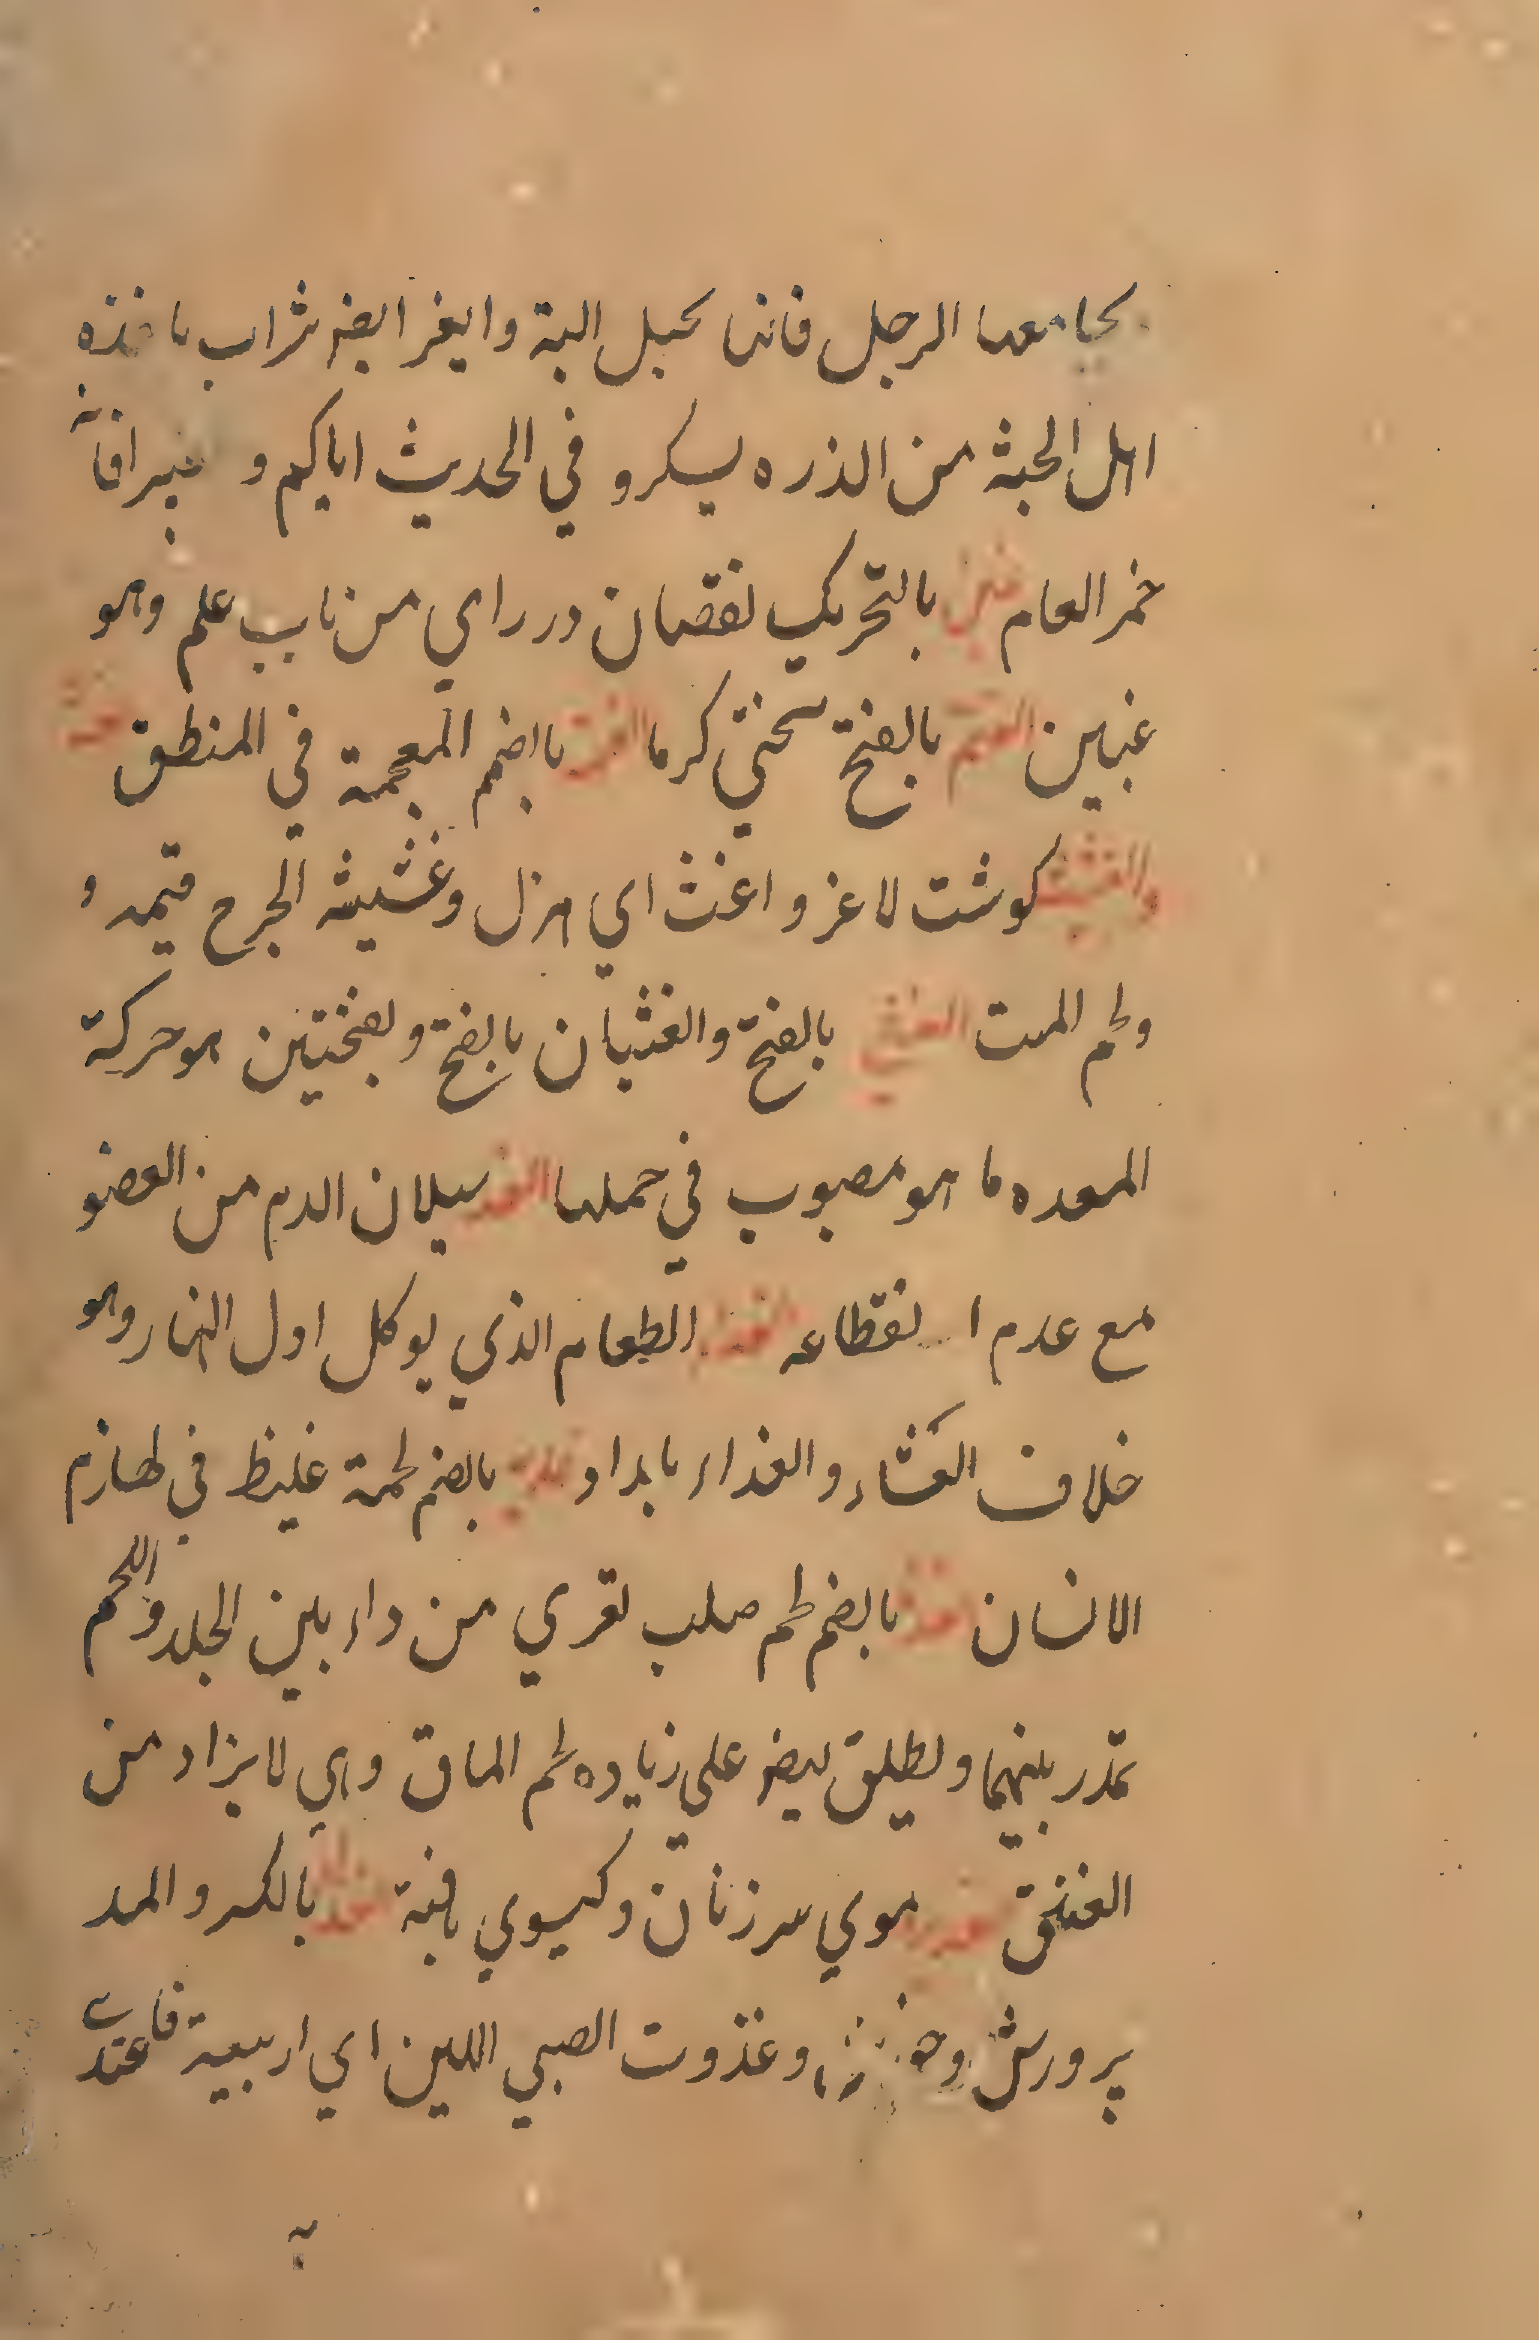 يجامعها الرجل فانها تحبل البتة وايغرا بضم شراب ياخذه
اهل الحبثه من الذره يسكر و في الحديث اياكم و فانه
خمر العام غبن بالتحريك نقصان در راي من باب علم وهو
غبين الغتم بالفتح سختي كرما الغتمة بالضم المعجمة في المنطق
والغثيثة كوشت لاغز و اغث اي هزل وغثيثه الجرح قيمه و
ولحم الميت الغثي بالفتح والغثيان بالفتح وبفتحتين هو حركة
المعده ما هو مصبوب في حملها الغذ سيلان الدم من العضو
مع عدم انقطاعه الغداء الطعام الذي يوكل اول النهار وهو
خلاف العشاء والغداء بامداد بالضم لحمة غليظ في لهازم
الانسان الغدة بالضم لحم صلب تقري من داء بين الجلد واللحم
تمدر بينهما ويطلق ايضا على زياده لحم الماق وهي لا يزاد من
العنق موي سر زنان وكيسوي بافته غذا بالكسر والمد
پرورش وخو وغذوت الصبي اللبن اي اربيعة فاغتدي
به